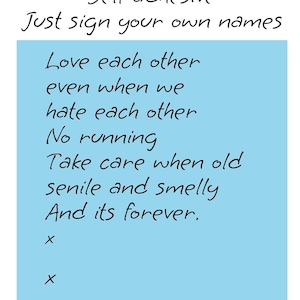 Just sign your own names
Love each other
even when we
hate each other
No running
Take care when old
senile and smelly
And its forever.
x
x